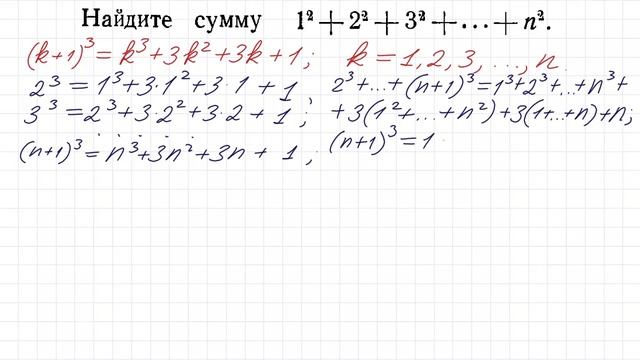 Найдите сумму 1² + 2² + 3² + ... + n².
(k+1)³ = k³ + 3k² + 3k + 1; k = 1, 2, 3, ..., n
2³ = 1³ + 3·1² + 3·1 + 1
3³ = 2³ + 3·2² + 3·2 + 1;
. . . . .
(n+1)³ = n³ + 3n² + 3n + 1;
2³ + ... + (n+1)³ = 1³ + 2³ + ... + n³ +
+ 3(1² + ... + n²) + 3(1 + ... + n) + n;
(n+1)³ = 1